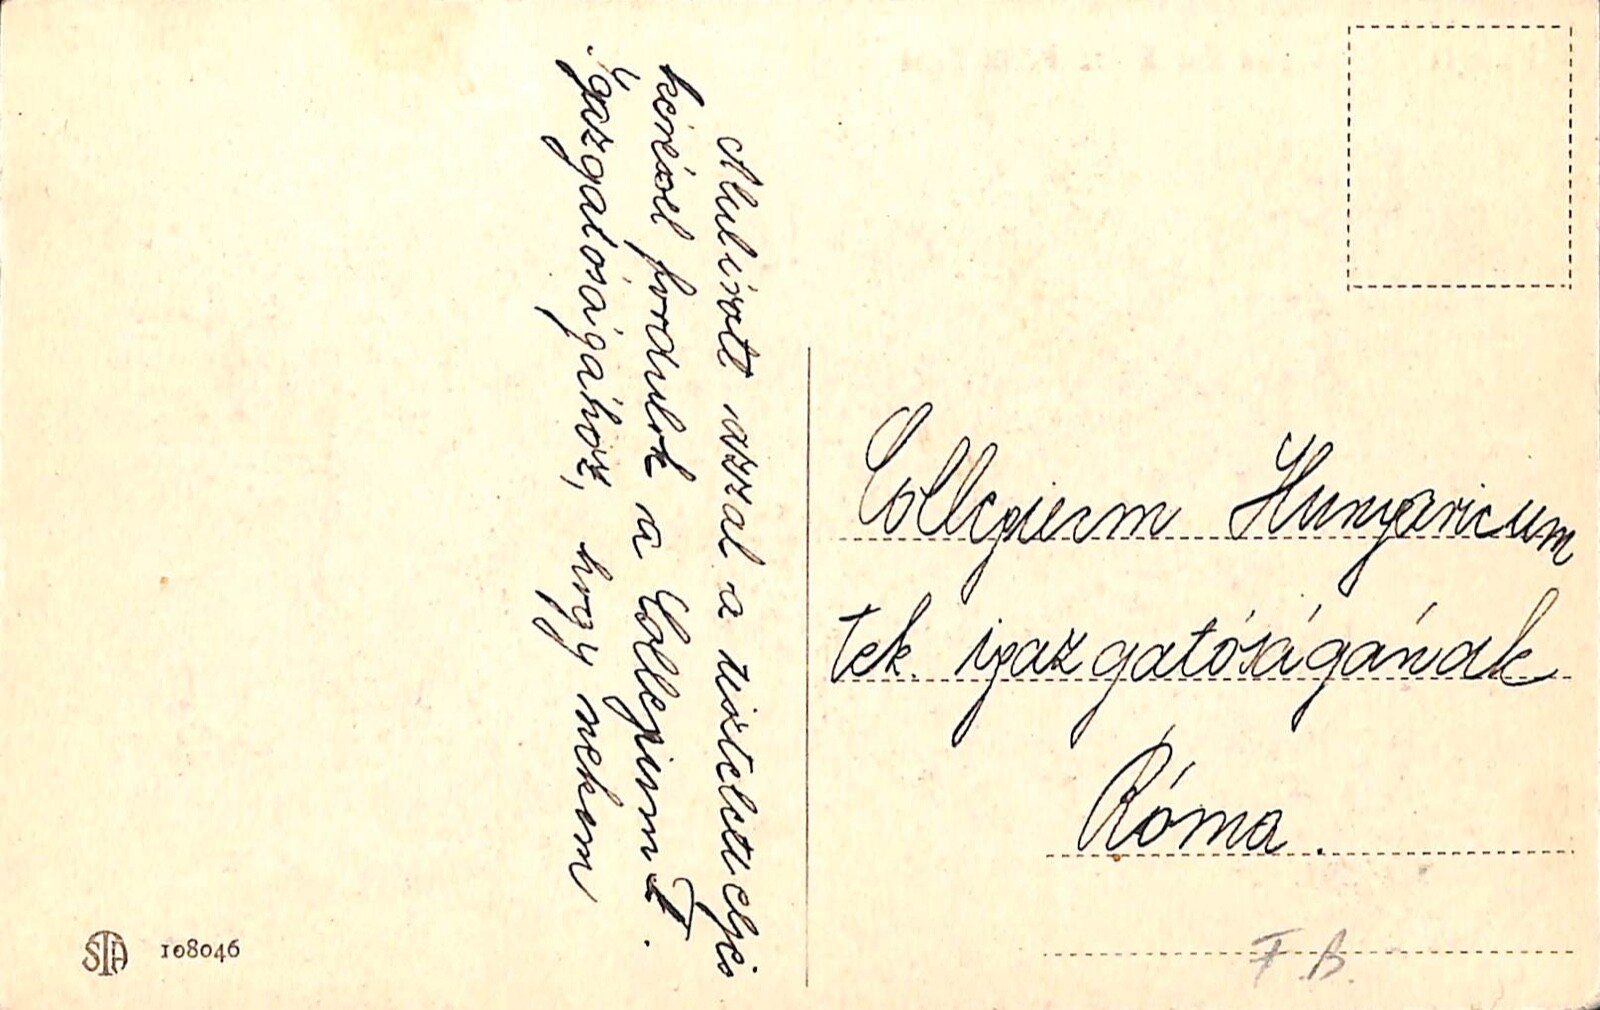 Alulírott azzal a tiszteletteljes
kéréssel fordulok a Collegium T.
Igazgatóságához, hogy nekem
Collegium Hungaricum
tek. igazgatóságának
Róma.
F.B.
STA 108046